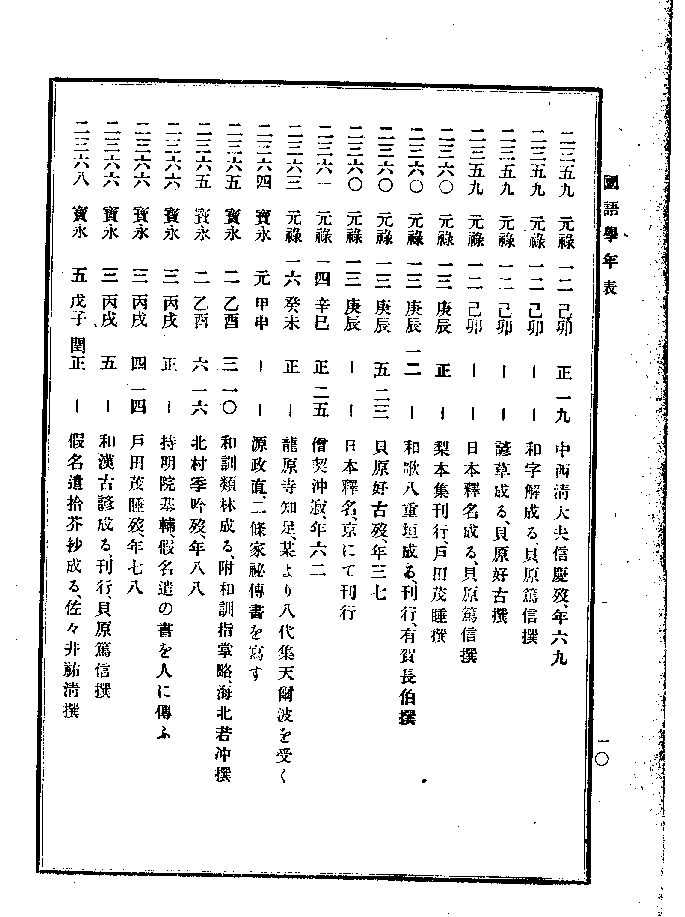 國語學年表
一〇
二三五九 元祿 一二 己卯 正 一九 中西淸大夫信慶歿、年六九
二三五九 元祿 一二 己卯 ー ー 和字解成る、貝原篤信撰
二三五九 元祿 一二 己卯 ー ー 諺草成る、貝原好古撰
二三五九 元祿 一二 己卯 ー ー 日本釋名成る、貝原篤信撰
二三六〇 元祿 一三 庚辰 正 ー 梨本集刊行、戶田茂睡撰
二三六〇 元祿 一三 庚辰 一二 ー 和歌八重垣成る、刊行、有賀長伯撰
二三六〇 元祿 一三 庚辰 五 二三 貝原好古歿、年三七
二三六〇 元祿 一三 庚辰 ー ー 日本釋名、京にて刊行
二三六一 元祿 一四 辛巳 正 二五 僧契沖寂、年六二
二三六三 元祿 一六 癸未 正 ー 龍原寺知足、某より八代集天爾波を受く
二三六四 寶永 元 甲申 ー ー 源政直、二條家祕傳書を寫す
二三六五 寶永 二 乙酉 三 一〇 和訓類林成る、附和訓指掌略、海北若沖撰
二三六五 寶永 二 乙酉 六 一六 北村季吟歿、年八八
二三六六 寶永 三 丙戌 正 ー 持明院基輔、假名遣の書を人に傳ふ
二三六六 寶永 三 丙戌 四 一四 戶田茂睡歿、年七八
二三六六 寶永 三 丙戌 五 ー 和漢古諺成る、刊行、貝原篤信撰
二三六八 寶永 五 戊子 閏正 ー 假名遣拾芥抄成る、佐々井祐淸撰